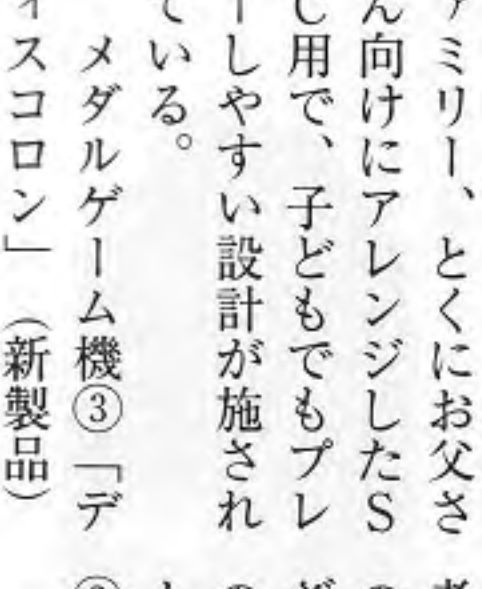 ァミリー、とくにお父さ
ん向けにアレンジしたS
じ用で、子どもでもプレ
ーしやすい設計が施され
ている。
メダルゲーム機③「デ
ィスコロン」（新製品）